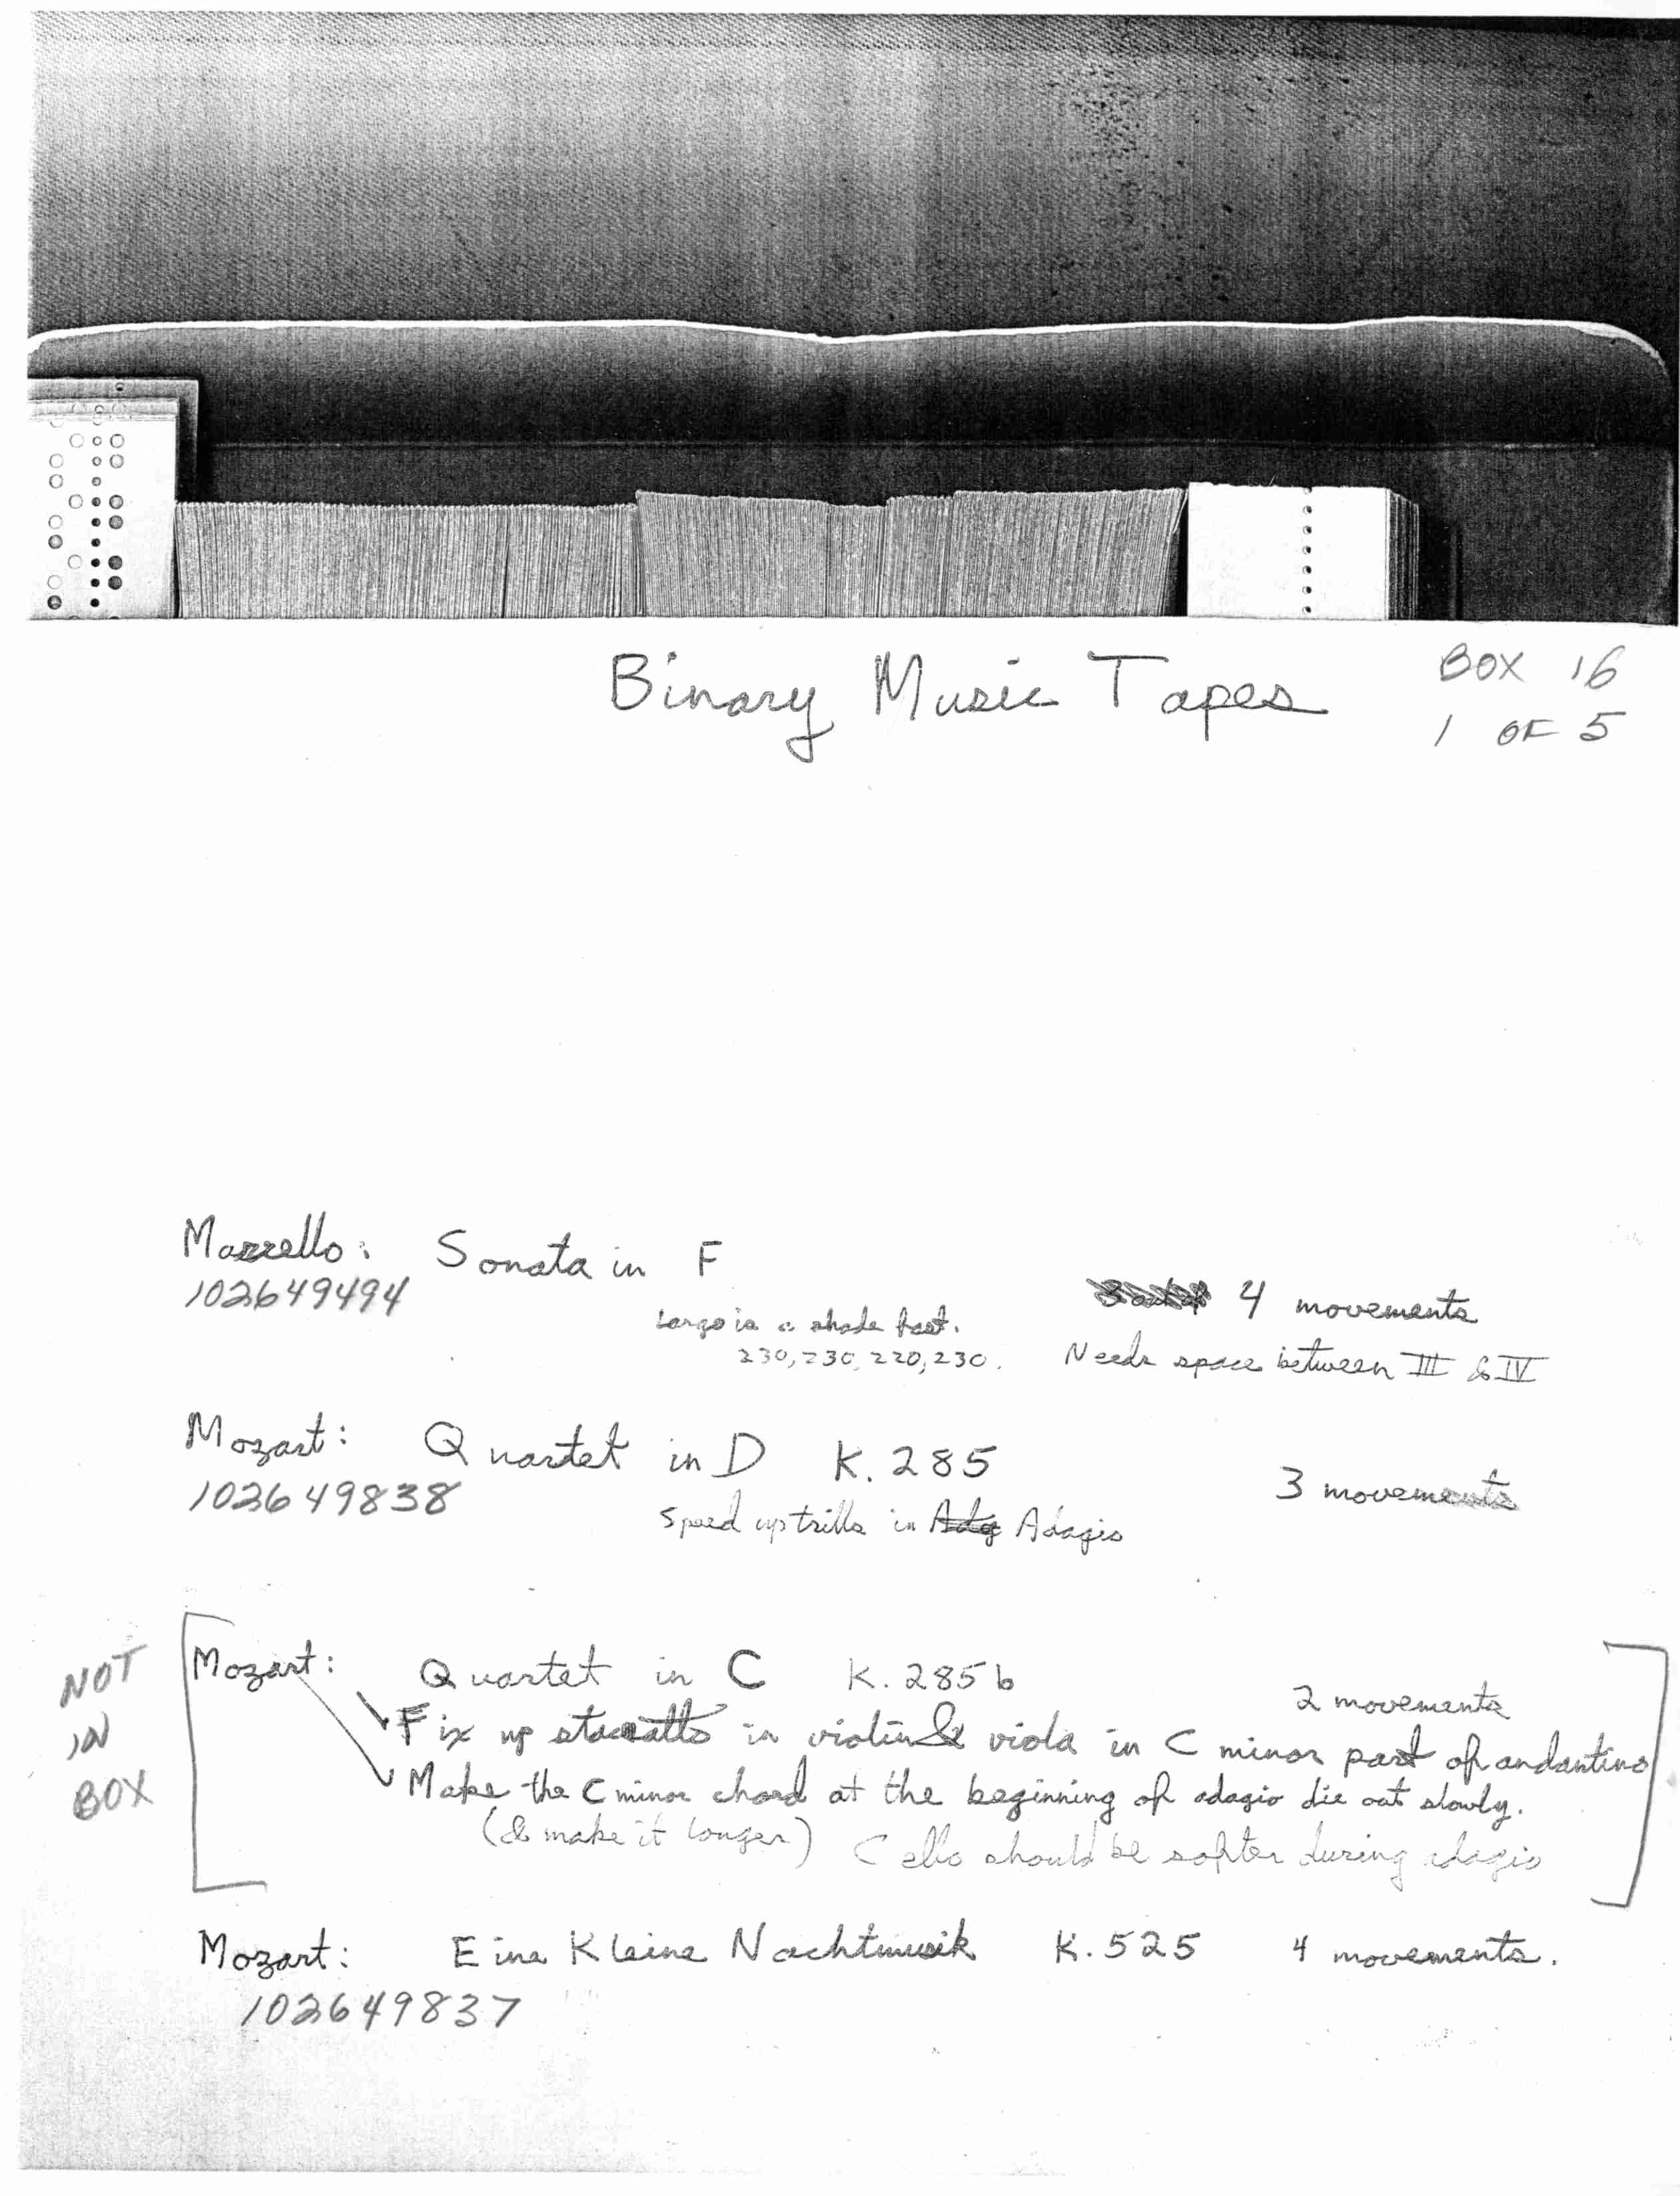 Binary Music Tapes
BOX 16
1 OF 5
Marcello: Sonata in F
102649494
4 movements
Largo is a shade fast.
230, 230, 220, 230.
Needs space between III & IV
Mozart: Quartet in D K. 285
102649838
3 movements
Speed up trills in Adg Adagio
NOT
IN
BOX
Mozart: Quartet in C K. 285b
2 movements
Fix up staccatto in violin & viola in C minor part of andantino
Make the C minor chord at the beginning of adagio die out slowly.
(& make it longer) Cello should be softer during adagio
Mozart: Eine Kleine Nachtmusik K. 525 4 movements.
102649837